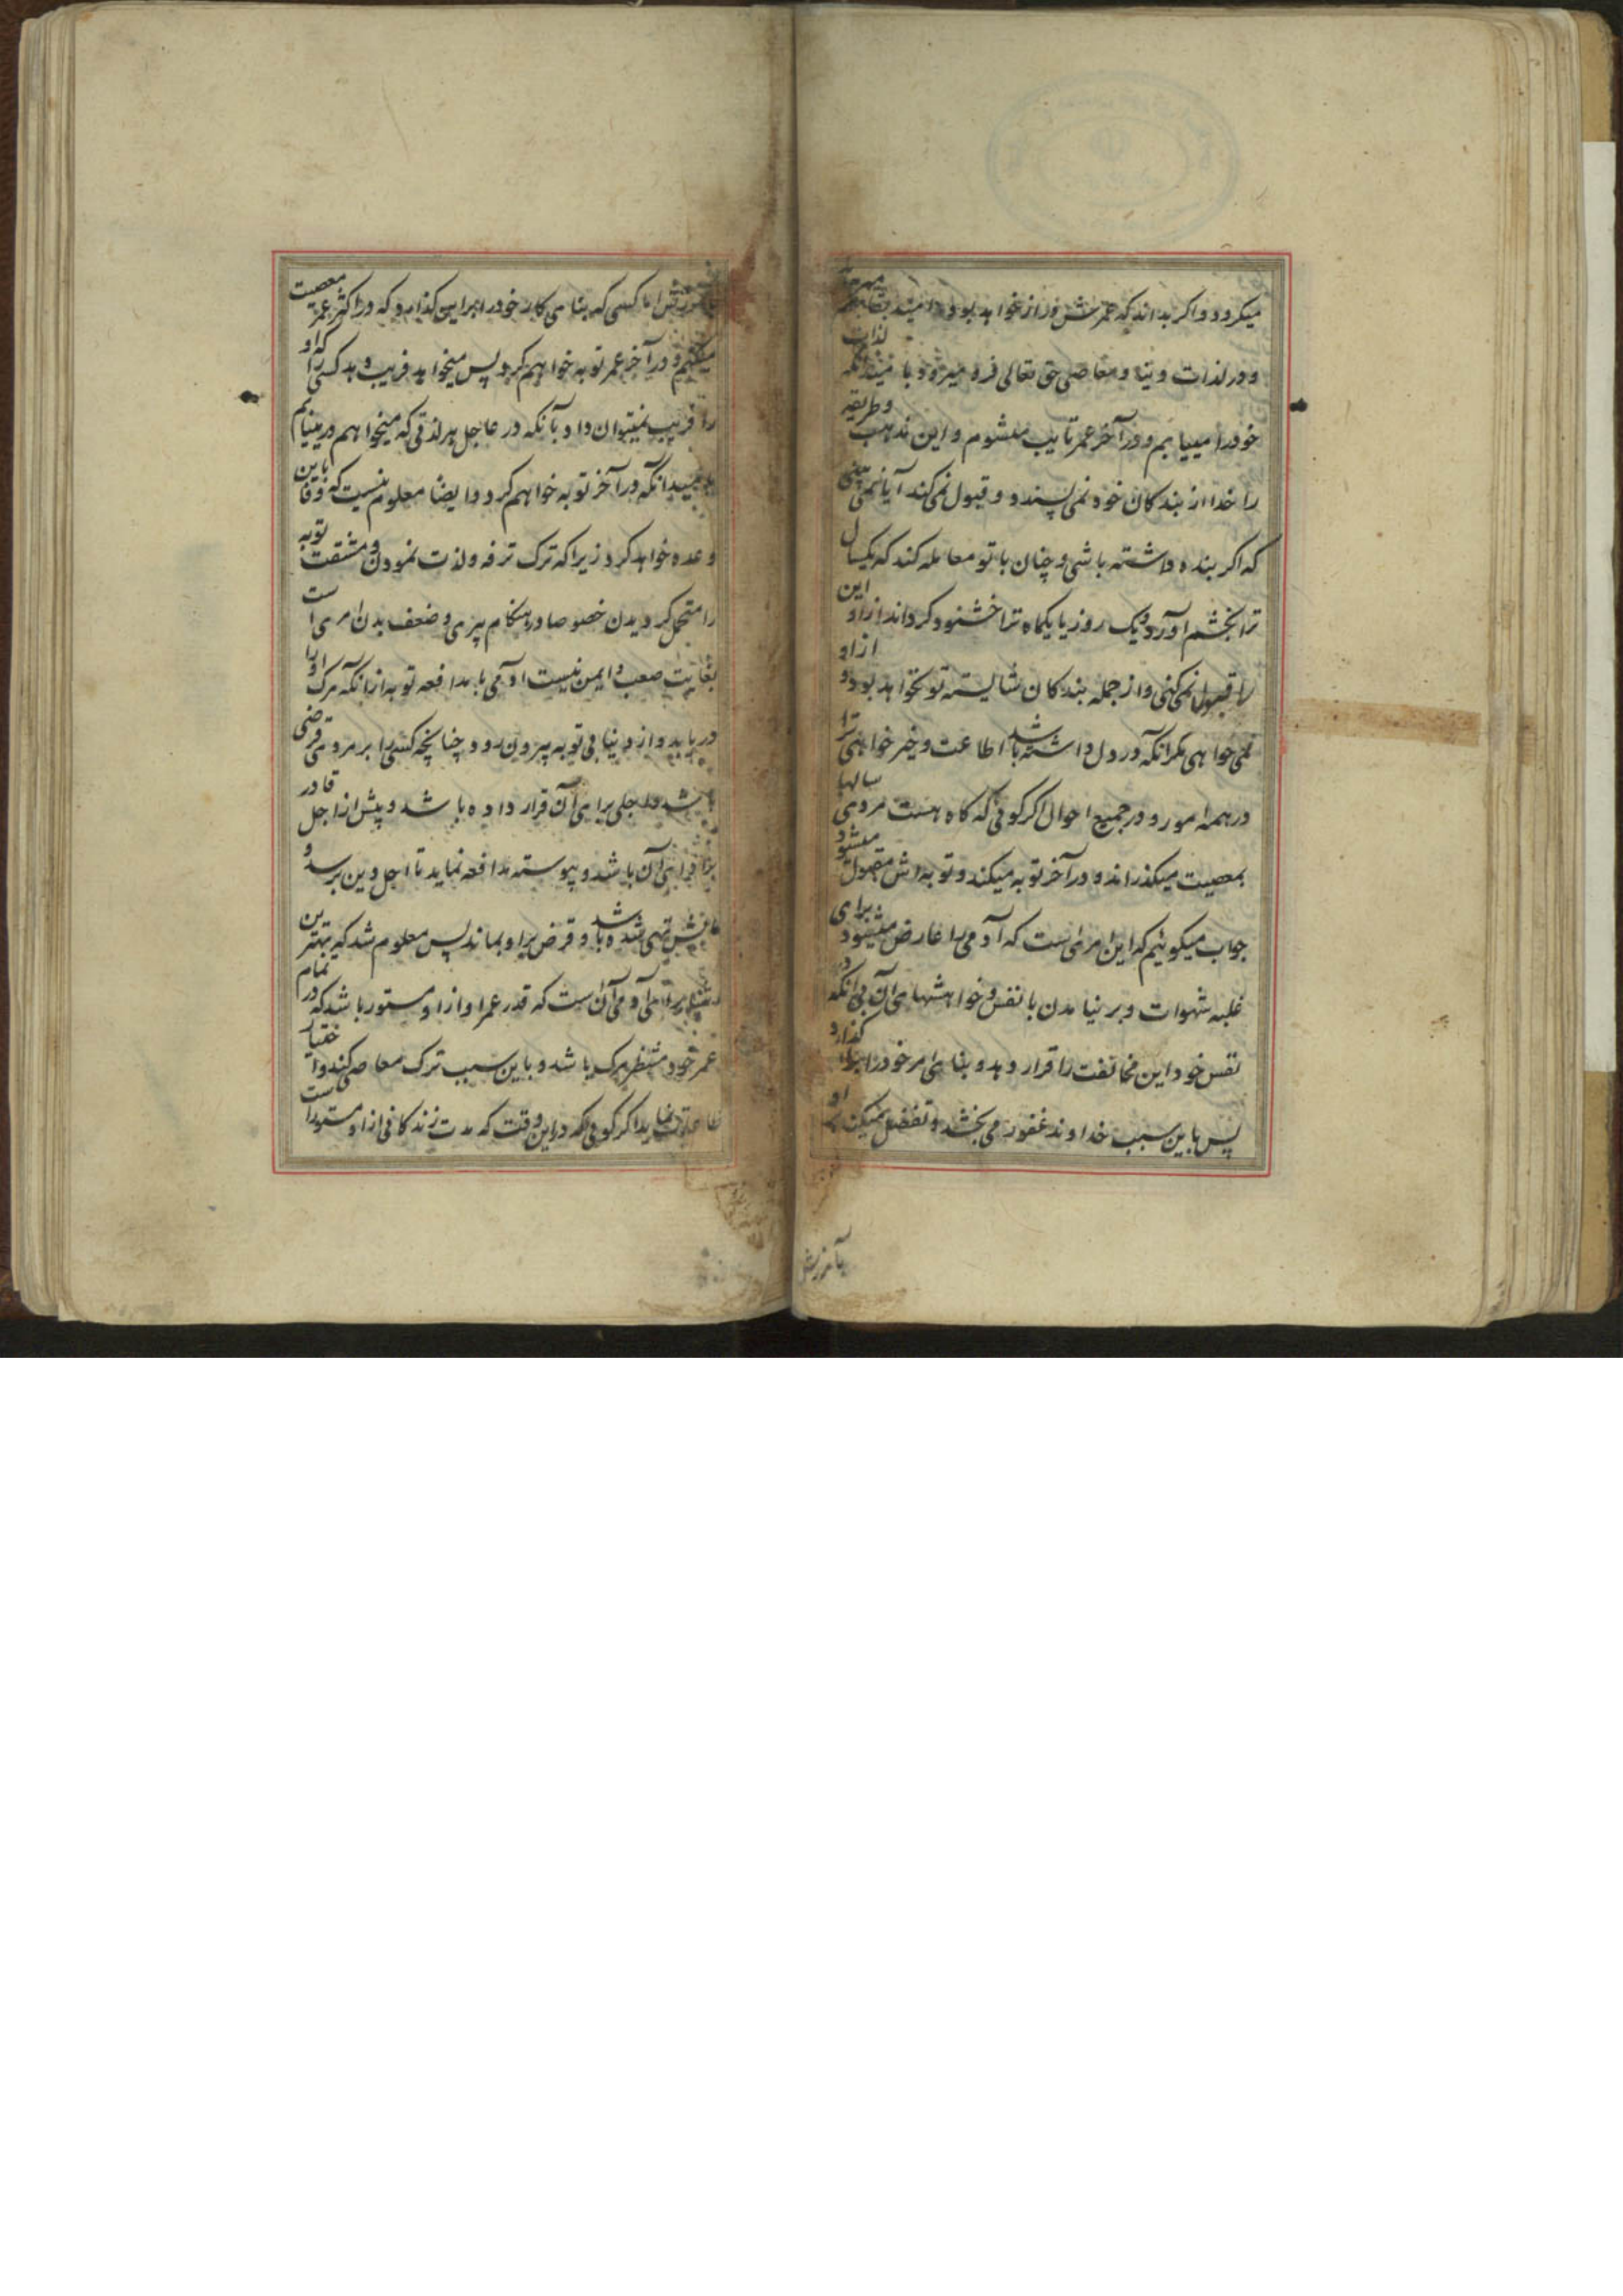 میکردد واکر بداند که عمرش دراز خواهد بود امید بقا بهم میرسد
ودر لذات دنیا ومعاصی حق تعالی فرو میرود باامید آنکه لذات
خودرا مییابم ودر آخر عمر تایب میشوم واین مذهب وطریقه
را خدا از بندکان خود نمی پسندد وقبول نمی کند آیا نمی بینی
که اکر بنده داشته باشی وچنان با تو معامله کند که یکسال
ترا بخشم آورد ویک روز یا یکماه ترا خشنود کرداند از او این
را قبول نمی کنی واز جمله بندکان شایسته تو نخواهد بود واز او
نمی خواهی مکر آنکه در دل داشته باشد اطاعت وخیر خواهی ترا
در همه امور ودر جمیع احوال اکر کوئی که کاه هست مردی سالها
بمعصیت میکذراند ودر آخر توبه میکند وتوبه اش مقبول میشود
جواب میکوئیم که این امری است که آدمی را عارض میشود برای
غلبه شهوات وبر نیامدن با نفس وخواهشهای آن بی آنکه در
نفس خود این مخالفت را قرار دهد وبنای امر خودرا براین کذارد
پس باین سبب خداوند غفور می بخشد وتفضل میکند بر او
بآمرزش
بآمرزش اما کسی که بنای کار خودرا براین کذارد که در اکثر عمر معصیت
میکنم ودر آخر عمر توبه خواهم کرد پس میخواهد فریب دهد کسی را که او
را فریب نمیتوان داد بآنکه در عاجل هر لذتی که میخواهم در مییابم
بامید آنکه در آخر توبه خواهم کرد وایضا معلوم نیست که وفا باین
وعده خواهد کرد زیرا که ترک ترفه ولذت نمودن ومشقت توبه
را متحمل کردیدن خصوصا در هنکام پیری وضعف بدن امری است
بغایت صعب وایمن نیست آدمی با مدافعه توبه از آنکه مرک او را
دریابد واز دنیا بی توبه بیرون رود چنانچه کسی را بر مردی قرضی
باشد واجلی برای آن قرار داده باشد وپیش از اجل قادر
بر ادای آن باشد وپیوسته مدافعه نماید تا اجل دین برسد و
مالش تهی شده باشد وقرض بر او بماند پس معلوم شد که بهترین
تقدیر برای آدمی آن است که قدر عمر او از او مستور باشد که در تمام
عمر خود منتظر مرک باشد وباین سبب ترک معاصی کند واختیار
طاعات نماید اکر کوئی که در این وقت که مدت زندکانی از او مستور است